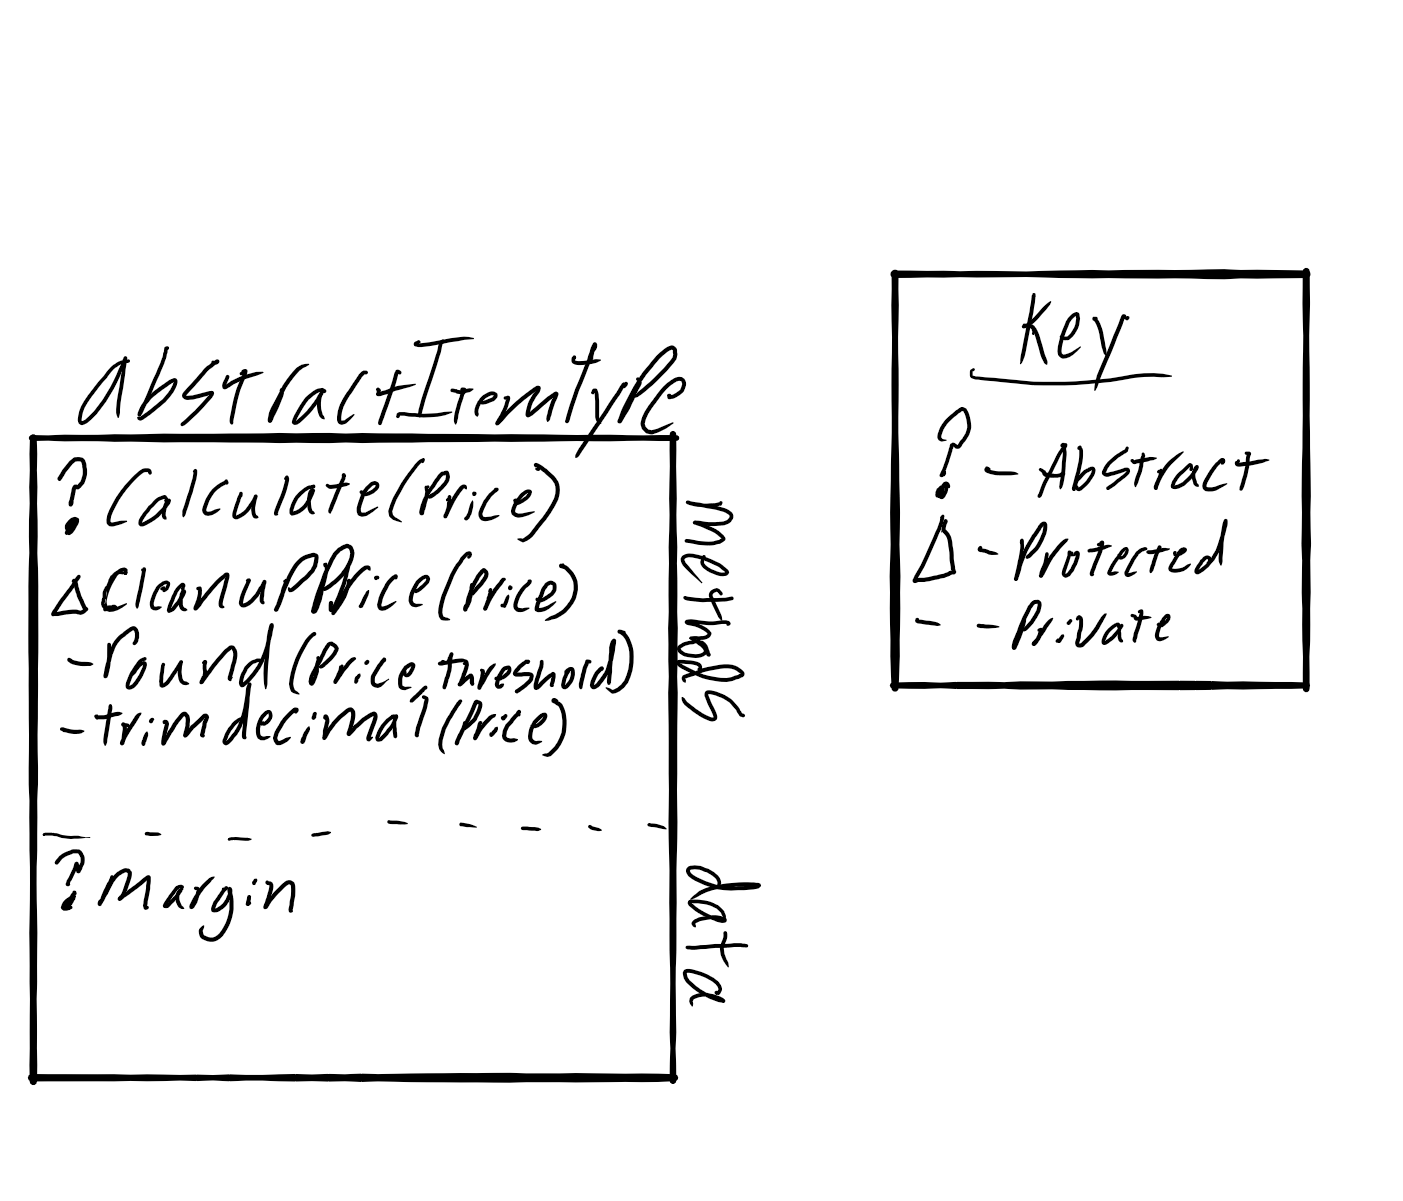 AbstractItemType
? Calculate(Price)
Δ CleanupPrice(Price)
- round(Price, threshold)
- trimdecimal(Price)
? Margin
methods
data
Key
? - Abstract
Δ - Protected
- - Private